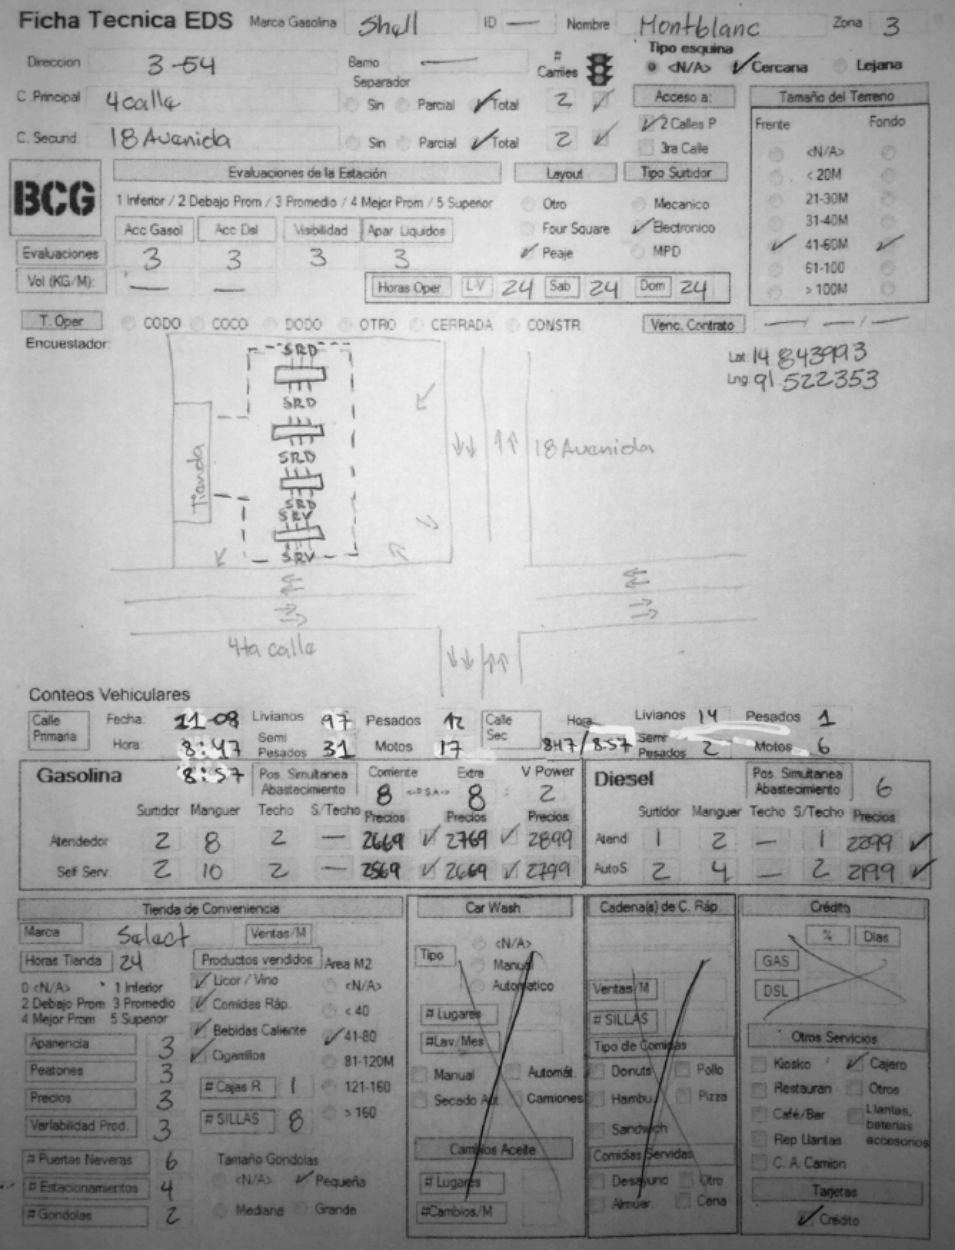 Ficha Tecnica EDS Marca Gasolina Shell ID — Nombre Montblanc Zona 3
Direccion 3-54 Barrio — # Carriles Tipo esquina <N/A> Cercana Lejana
Separador
C .Principal 4 calle Sin Parcial Total 2 Acceso a: Tamaño del Terreno
C. Secund 18 Avenida Sin Parcial Total 2 2 Calles P Frente Fondo
3ra Calle <N/A>
BCG Evaluaciones de la Estación Layout Tipo Surtidor < 20M
1 Inferior / 2 Debajo Prom / 3 Promedio / 4 Mejor Prom / 5 Superior Otro Mecanico 21-30M
Acc Gasol Acc Dsl Visibilidad Apar Liquidos Four Square Electronico 31-40M
Evaluaciones 3 3 3 3 Peaje MPD 41-60M
61-100
Vol (KG/M): — — Horas Oper L-V 24 Sab 24 Dom 24 > 100M
T. Oper CODO COCO DODO OTRO CERRADA CONSTR. Venc. Contrato — / — / —
Encuestador:
Lat 14 843993
Lng 91 522353
SRD
SRD
SRD
SRD
SRV
SRV
Tienda
18 Avenida
4ta calle
Conteos Vehiculares
Calle Primaria Fecha: 21-08 Livianos 97 Pesados 12 Calle Sec Hora 847/857 Livianos 14 Pesados 1
Hora: 8:47 Semi Pesados 31 Motos 17 Semi Pesados 2 Motos 6
8:57
Gasolina Pos. Simultanea Abastecimiento Corriente 8 <-D S A-> Extra 8 V Power 2 Diesel Pos. Simultanea Abastecimiento 6
Surtidor Manguer Techo S/Techo Precios Precios Precios Surtidor Manguer Techo S/Techo Precios
Atendedor 2 8 2 — 2669 2769 2899 Atend 1 2 — 1 2299
Self Serv. 2 10 2 — 2569 2669 2799 AutoS 2 4 — 2 2199
Tienda de Conveniencia Car Wash Cadena(s) de C. Ráp. Crédito
Marca Select Ventas/M <N/A> % Dias
Horas Tienda 24 Productos vendidos Area M2 Tipo Manual GAS
0 <N/A> 1 Inferior Licor / Vino <N/A> Automatico Ventas/M DSL
2 Debajo Prom 3 Promedio Comidas Ráp. < 40 # Lugares # SILLAS
4 Mejor Prom 5 Superior Bebidas Caliente 41-80 #Lav/Mes Tipo de Comidas Otros Servicios
Apariencia 3 Cigarrillos 81-120M Manual Automát. Donuts Pollo Kiosko Cajero
Peatones 3 # Cajas R 1 121-160 Secado Aut. Camiones Hambu Pizza Restauran Otros
Precios 3 # SILLAS 8 > 160 Sandwich Café/Bar Llantas, baterias accesorios
Variabilidad Prod. 3 Cambios Aceite Comidas Servidas Rep Llantas
# Puertas Neveras 6 Tamaño Gondolas # Lugares Desayuno Otro C. A. Camion
# Estacionamientos 4 <N/A> Pequeña #Cambios/M Almuer. Cena Tarjetas
# Gondolas 2 Mediana Grande Crédito